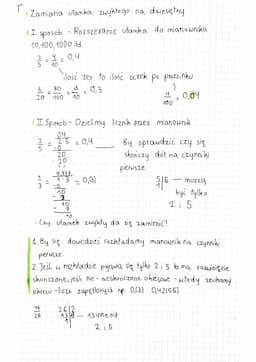 1. Zamiana ułamka zwykłego na dziesiętny
I sposób - Rozszerzanie ułamka do mianownika
10, 100, 1000 itd.
2/5 = 4/10 = 0,4
ilość zer to ilość oczek po przecinku
= 30/100 = = 0,3
4/100 = 0,04
II Sposób - Dzielimy licznik przez mianownik
2/5 = = 0,4
By sprawdzić czy się
skończy dół na czynniki
pierwsze
1/3 = = 0,(3)
5|5 - muszą
1| być tylko
2 i 5
- Czy ułamek zwykły da się zamienić?
1. By się dowiedzieć rozkładamy mianownik na czynniki
pierwsze
2. Jeśli w rozkładzie pojawia się tylko 2 i 5 to ma rozwinięcie
skończone, jeśli nie - nieskończone okresowe - wtedy szukamy
okresu - liczb zapętlonych np. 0,(3)
26|2
13|13 - 13 inne niż
1| 2 i 5